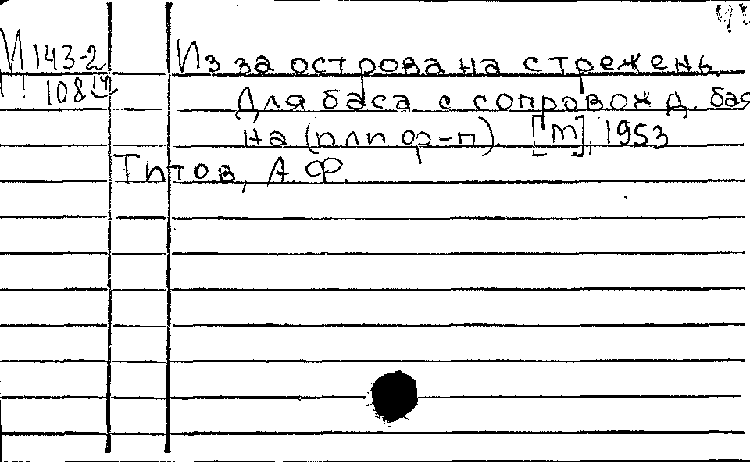 М 143-2 Из за острова на стрежень.
108 Для баса с сопровожд. бая
на (или ф-п). [m], 1953
Титов, А. Ф.